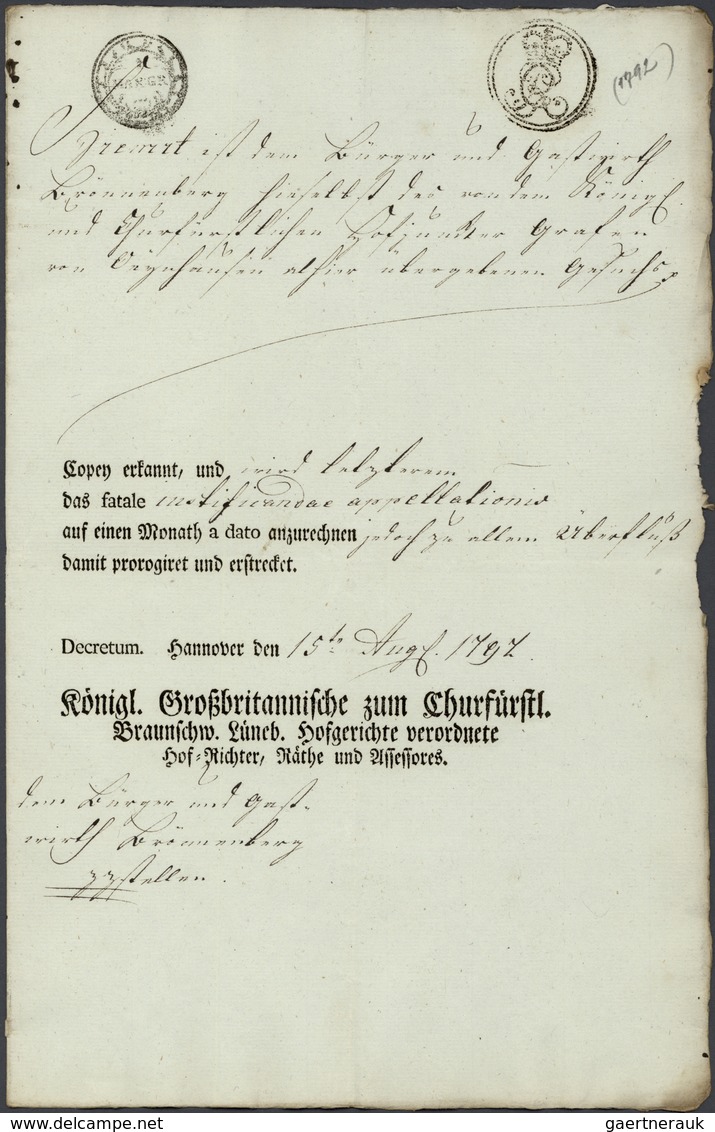 (1792)
Hiemit ist dem Bürger und Gastwirth
Brönnenberg hieselbst des von dem Königl.
und Churfürstlichen Hofjuncker Grafen
von Oeynhausen alhier übergebenen Gesuchs
Copey erkannt, und wird letzterem
das fatale justificandae appellationis
auf einen Monath a dato anzurechnen jedoch zu allem Überfluß
damit prorogiret und erstrecket.
Decretum. Hannover den 15ten Aug. 1792.
Königl. Großbritannische zum Churfürstl.
Braunschw. Lüneb. Hofgerichte verordnete
Hof-Richter, Räthe und Assessores.
dem Bürger und Gast-
wirth Brönnenberg
zzstellen.
delcampe.net
gaertnerauk